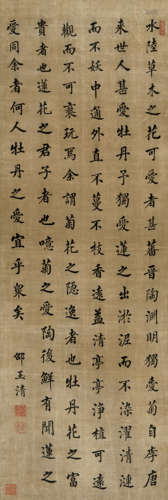 水陸草木之花可愛甚蕃晉陶淵明獨愛菊自李唐
來世人甚愛牡丹予獨愛蓮之出淤泥而不染濯清漣
而不妖中通外直不蔓不枝香遠益清亭亭淨植可遠
觀而不可褻玩焉余謂菊花之隱逸者也牡丹花之富
貴者也蓮花之君子者也噫菊之愛陶後鮮有聞蓮之
愛同余者何人牡丹之愛宜乎衆矣
邵玉清